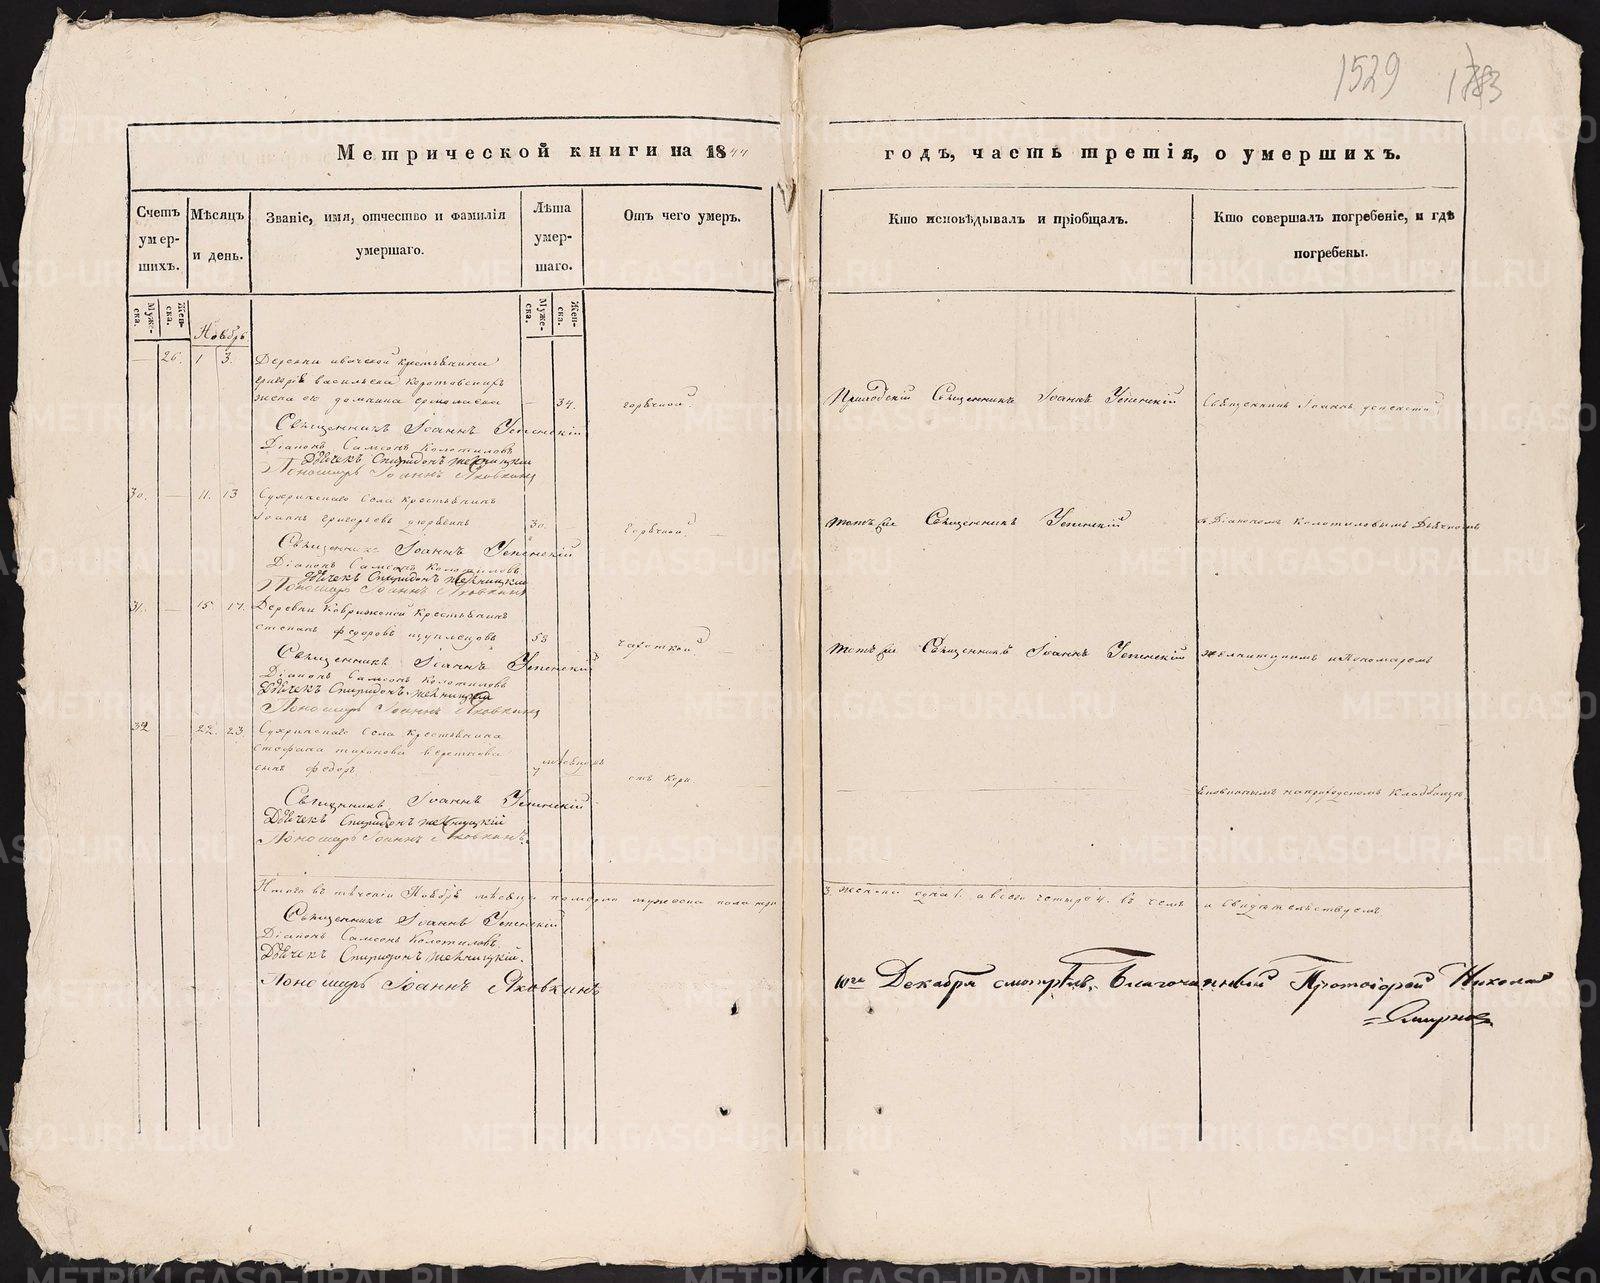 1529
Метрической книги на 1844
годъ, часть третія, о умершихъ.
Счетъ умер-шихъ.
Мѣсяцъ и день.
Званіе, имя, отчество и фамилія умершаго.
Лѣта умер-шаго.
Отъ чего умеръ.
Кто исповѣдывалъ и пріобщалъ.
Кто совершалъ погребеніе, и гдѣ погребены.
Муже-ска.
Жен-ска.
Муже-ска.
Жен-ска.
Ноябрь
26. 1 3. Деревни крестьянина
григорія васильева
жена его домнина 34. горячкой.
Приходскій Священникъ Іоаннъ Успенскій
Священникъ Іоаннъ успенскій
Священникъ Іоаннъ Успенскій
Діаконъ Самсонъ Колотиловъ
Дьячекъ Спиридонъ
Пономарь Іоаннъ Яковкинъ
30. 11. 13 села крестьянинъ
Іоаннъ григорьевъ 30. горячкой.
тотъ же Священникъ Успенскій
съ Діакономъ Колотиловымъ Дьячкомъ
Священникъ Іоаннъ Успенскій
Діаконъ Самсонъ Колотиловъ
Дьячекъ Спиридонъ
Пономарь Іоаннъ Яковкинъ
31. 15 17. Деревни крестьянинъ
степанъ федоровъ 53 чахоткой
тотъ же Священникъ Іоаннъ Успенскій
и Пономаремъ
Священникъ Іоаннъ Успенскій
Діаконъ Самсонъ Колотиловъ
Дьячекъ Спиридонъ
Пономарь Іоаннъ Яковкинъ
32 22. 23 села крестьянина
стефана тихонова
сынъ федоръ отъ кори
на приходскомъ кладбищѣ
Священникъ Іоаннъ Успенскій
Дьячекъ Спиридонъ
Пономарь Іоаннъ Яковкинъ.
Итого въ теченіи Ноября мѣсяца померло мужеска пола три
3. женска одна 1. а всего четыре 4. въ чемъ и свидѣтельствуемъ.
Священникъ Іоаннъ Успенскій
Діаконъ Самсонъ Колотиловъ
Дьячекъ Спиридонъ
Пономарь Іоаннъ Яковкинъ
10го Декабря смотрѣлъ. Благочинный Протоіерей Николай
Смирновъ
METRIKI.GASO-URAL.RU